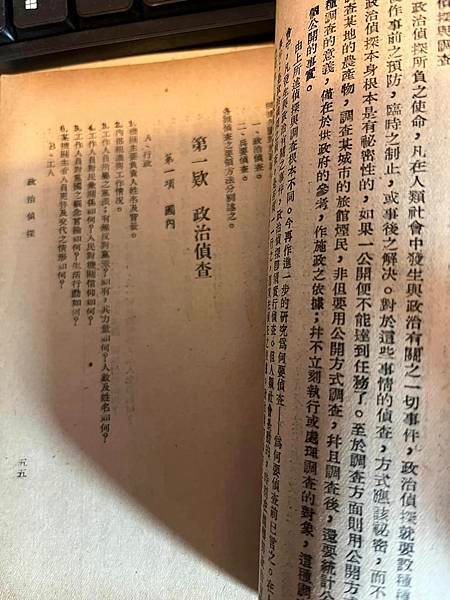 與調查
政治偵探所負之使命,凡在人類社會中發生與政治有關之一切事件,政治偵探就要設種種
作事前之預防,臨時之制止,或事後之解決。對於這些事情的偵查,方式應該秘密,而不
政治偵探本身根本是有秘密性的,如果一公開便不能達到任務了。至於調查方面則用公開方
調查某地的農產物,調查某城市的旅館煙民,非但要用公開方式調查,幷且調查後,還要統計公
種調查的意義,僅在於供政府的參考,作施政之依據;幷不立刻執行或處理調查的對象,這種調
個公開的事實。
由上所述偵探與調查根本不同。今再作進一步的研究爲何要偵查——爲何要偵查前已言之。在
會中,凡發生與政治有關之事件,政治偵探卽須實行偵查。但人類社會是動的,
一、政治偵查。
二、兵要偵查。
各種偵查之要領方法分別述之。
第一欵 政治偵查
第一項 國內
A、行政
1.機關主要負責人姓名及背景。
2.內部組織與工作情況。
3.工作人員 黨派;有無反動黨派?如有,其力量如何?人數及姓名如何?
4.工作人員對民衆關係如何?人民對機關信仰如何?
5.工作人員對黨國之觀念言論如何?生活行動如何?
6.某機關主管人員更替及交代之情形如何?
B、軍人
政治偵探
五五